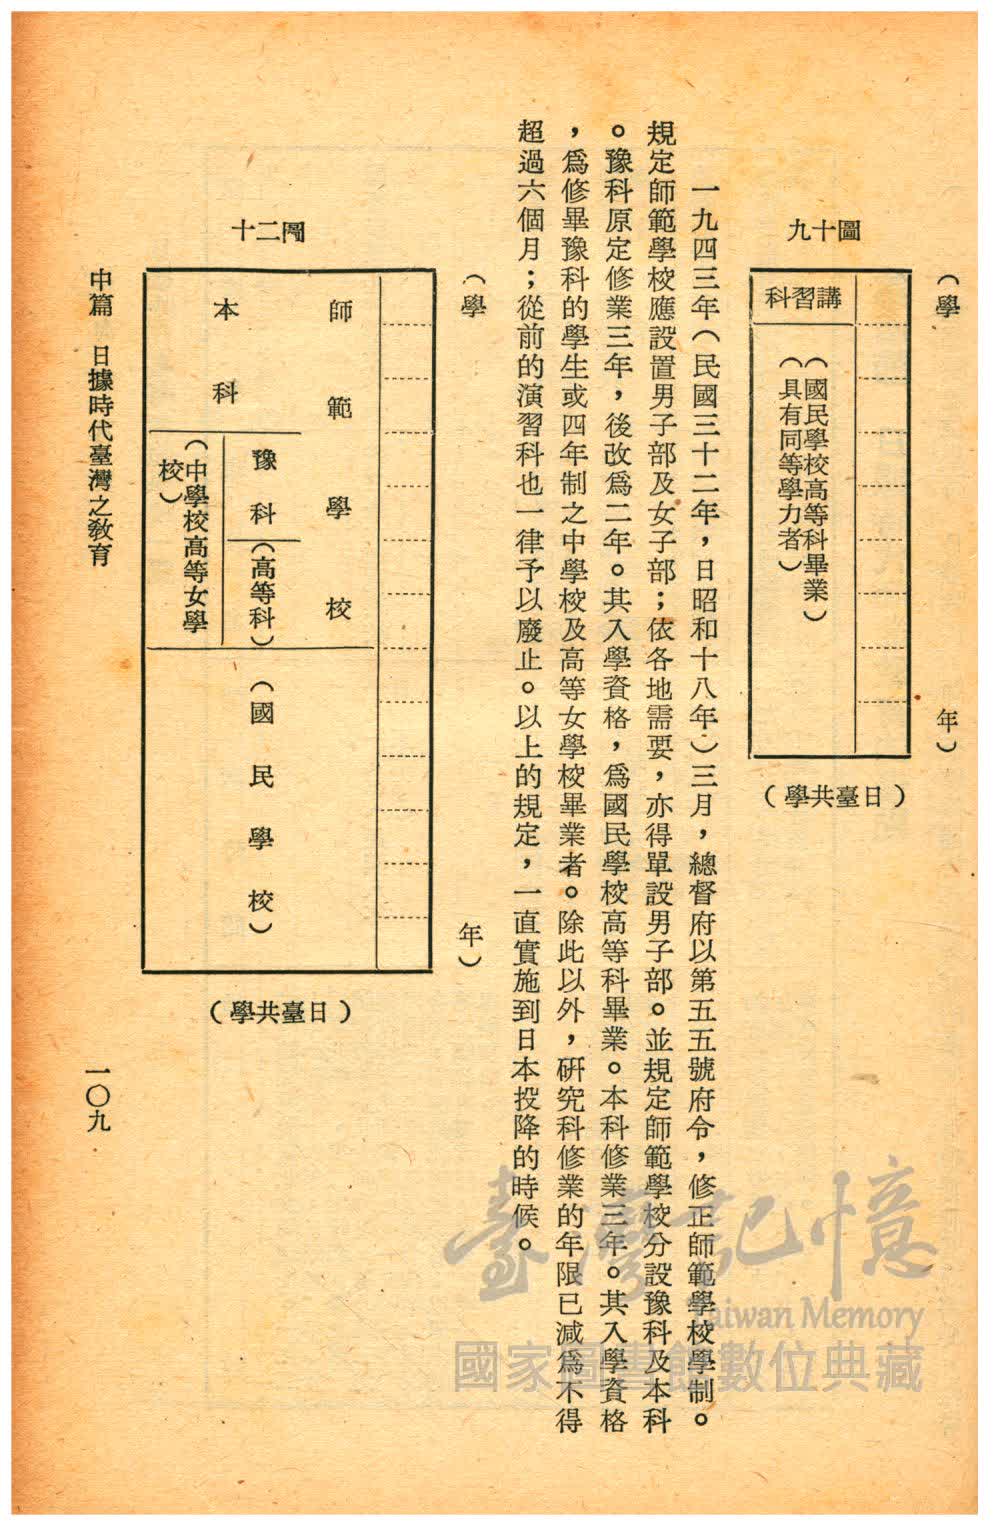 （學年）
圖十九
講習科
（國民學校高等科畢業）
（具有同等學力者）
（日臺共學）
一九四三年（民國三十二年，日昭和十八年）三月，總督府以第五五號府令，修正師範學校學制。
規定師範學校應設置男子部及女子部；依各地需要，亦得單設男子部。並規定師範學校分設豫科及本科
。豫科原定修業三年，後改爲二年。其入學資格，爲國民學校高等科畢業。本科修業三年。其入學資格
，爲修畢豫科的學生或四年制之中學校及高等女學校畢業者。除此以外，研究科修業的年限已減爲不得
超過六個月；從前的演習科也一律予以廢止。以上的規定，一直實施到日本投降的時候。
（學年）
圖二十
師範學校
本科
豫科
（高等科）
（中學校高等女學
校）
（國民學校）
（日臺共學）
中篇 日據時代臺灣之教育
一〇九
臺灣記憶
Taiwan Memory
國家圖書館數位典藏